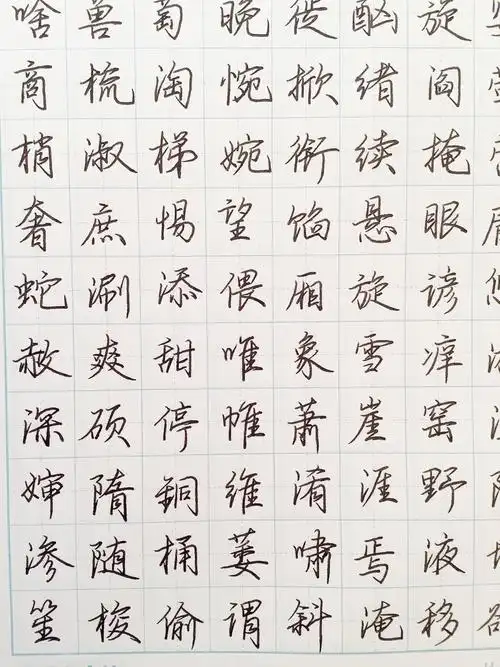 啥兽萄晚徙酗旋
商梳淘惋掀绪阎
梢淑梯婉衔续掩
奢庶惕望馅悬眼
蛇涮添偎厢旋谚
赦爽甜唯象雪痒
深硕停帷萧崖窑
婶隋銅维淆涯野
渗随桶萎啸焉液
笙梭偷谓斜淹移